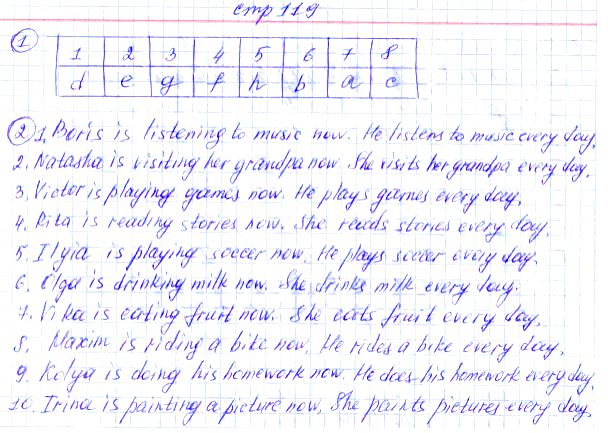 стр 119
1
1 2 3 4 5 6 7 8
d e g f h b a c
2 1. Boris is listening to music now. He listens to music every day.
2. Natasha is visiting her grandpa now. She visits her grandpa every day.
3. Victor is playing games now. He plays games every day.
4. Rita is reading stories now. She reads stories every day.
5. Ilyia is playing soccer now. He plays soccer every day.
6. Olga is drinking milk now. She drinks milk every day.
7. Vika is eating fruit now. She eats fruit every day.
8. Maxim is riding a bike now. He rides a bike every day.
9. Kolya is doing his homework now. He does his homework every day.
10. Irina is painting a picture now. She paints pictures every day.